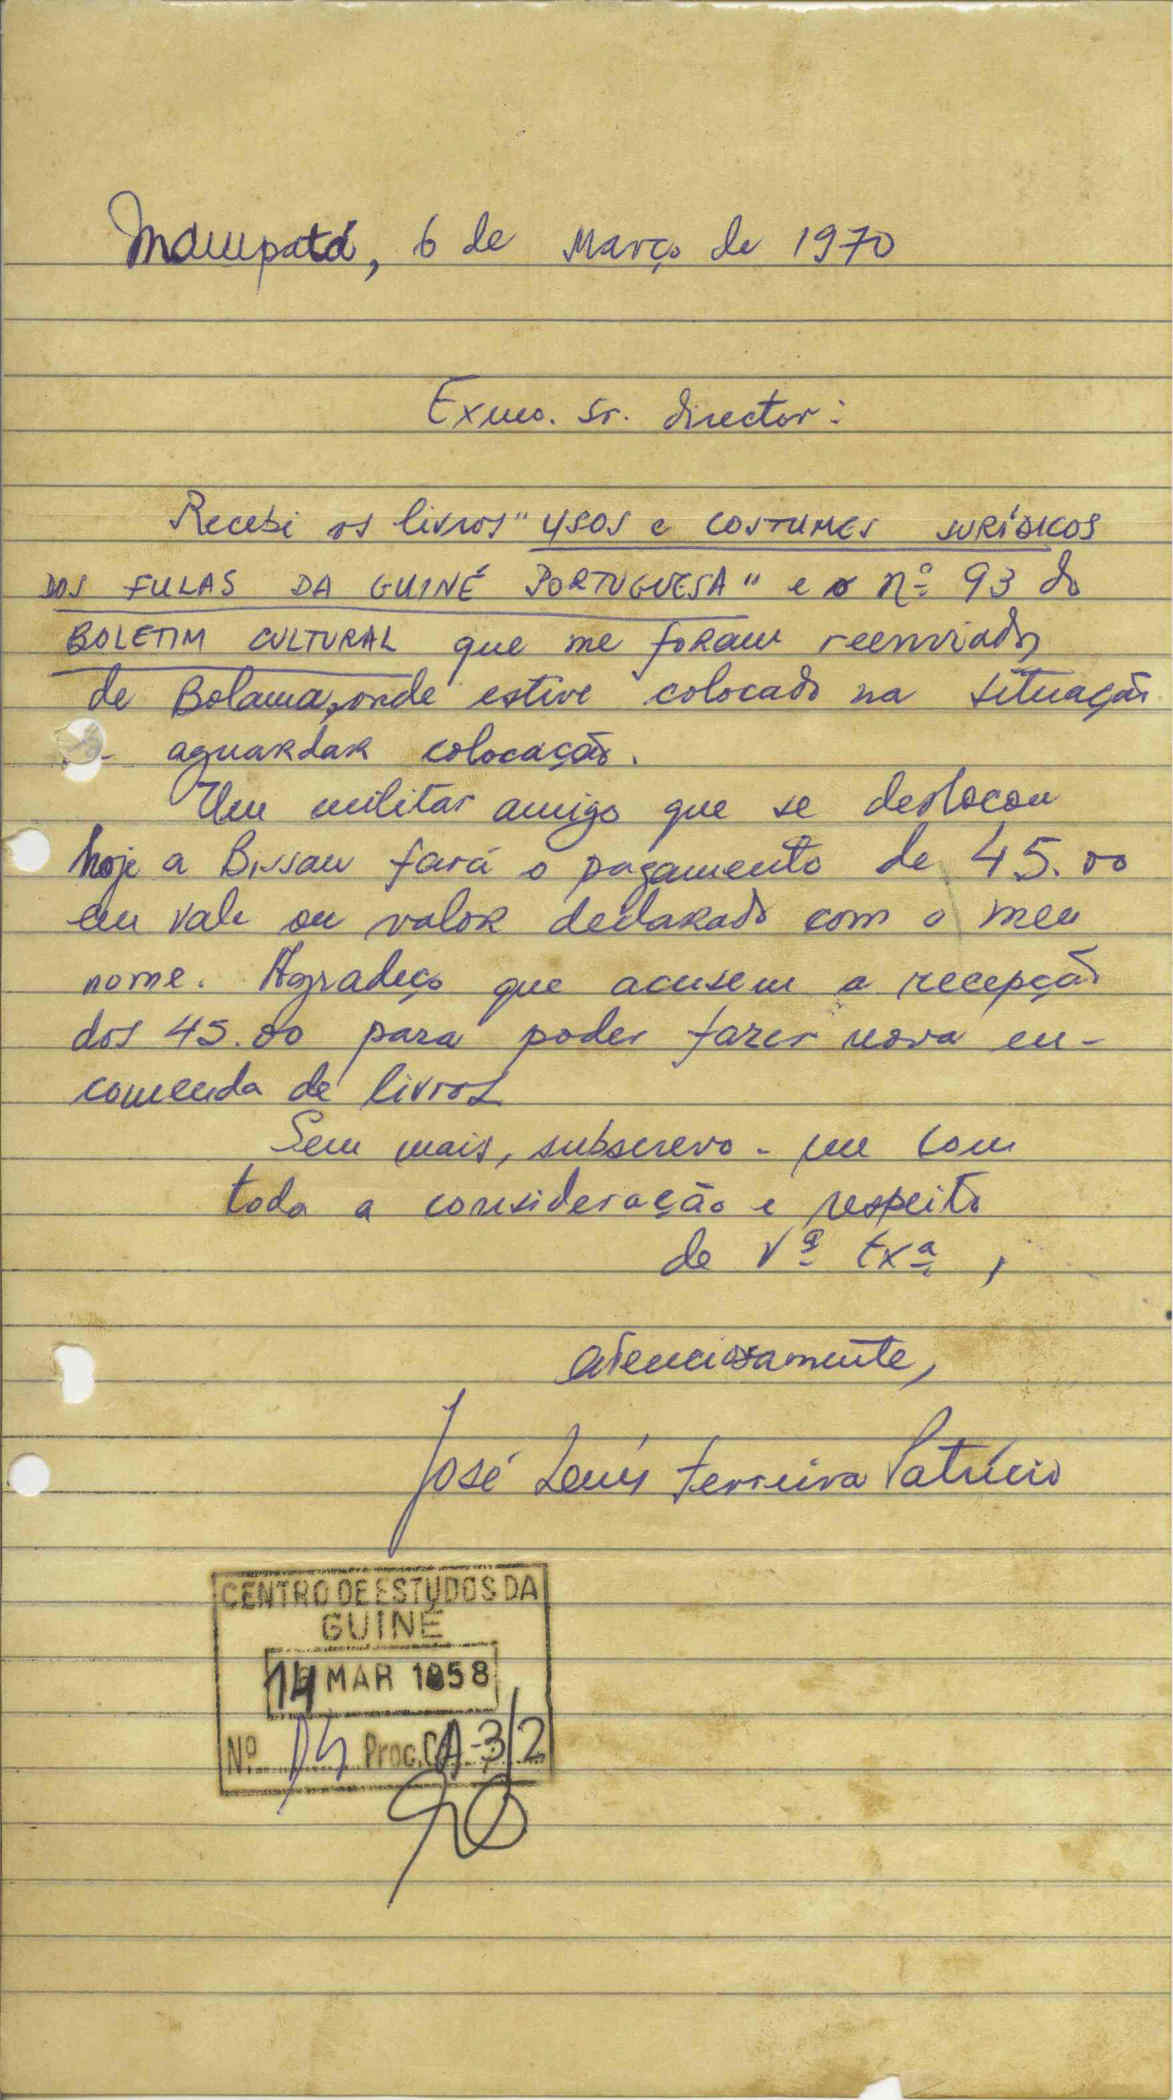 Mampatá, 6 de Março de 1970
Exmo. Sr. director:
Recebi os livros "USOS e COSTUMES JURÍDICOS
DOS FULAS DA GUINÉ PORTUGUESA" e o nº 93 do
BOLETIM CULTURAL que me foram reenviados
de Bolama, onde estive colocado na situação
aguardar colocação.
Um militar amigo que se deslocou
hoje a Bissau fará o pagamento de 45.00
em vale ou valor declarado com o meu
nome. Agradeço que acusem a recepção
dos 45.00 para poder fazer nova en-
comenda de livros
Sem mais, subscrevo-me com
toda a consideração e respeito
de Vª Exª,
atenciosamente,
José Luís Ferreira Patrício
CENTRO DE ESTUDOS DA
GUINÉ
14 MAR 1958
Nº Proc. CA-3/2